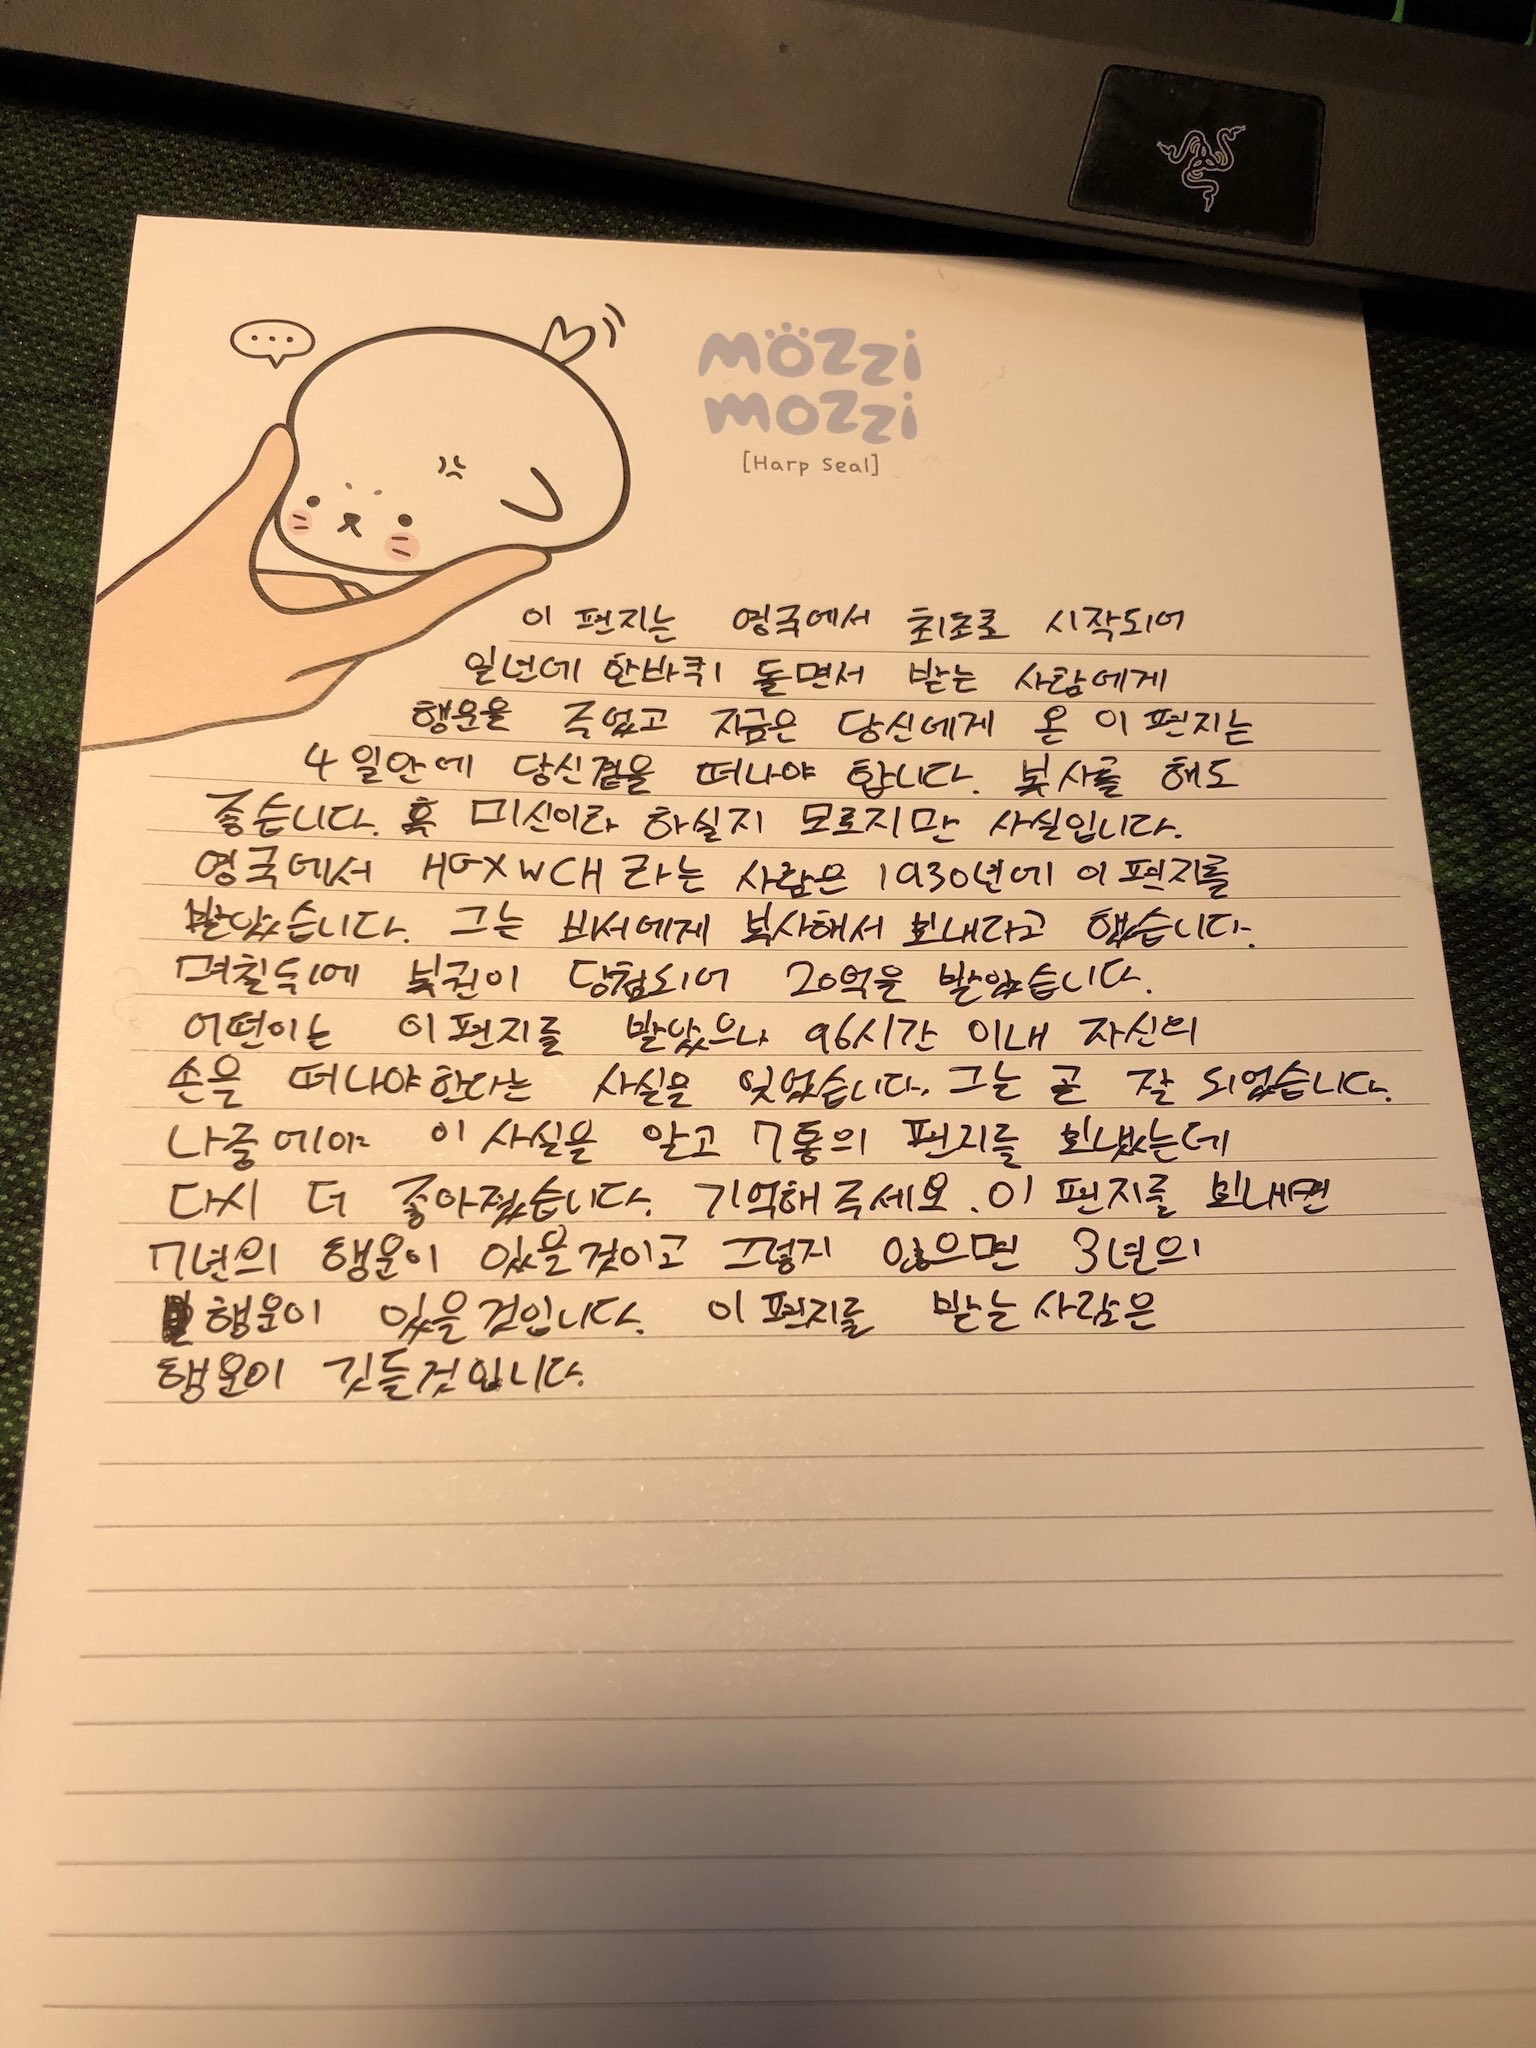 mözzi
mozzi
[Harp Seal]
이 편지는 영국에서 최초로 시작되어
일년에 한바퀴 돌면서 받는 사람에게
행운을 주었고 지금은 당신에게 온 이 편지는
4일안에 당신곁을 떠나야 합니다. 복사를 해도
좋습니다. 혹 미신이라 하실지 모르지만 사실입니다.
영국에서 HGXWCH라는 사람은 1930년에 이 편지를
받았습니다. 그는 비서에게 복사해서 보내라고 했습니다.
며칠뒤에 복권이 당첨되어 20억을 받았습니다.
어떤이는 이 편지를 받았으나 96시간 이내 자신의
손을 떠나야한다는 사실을 잊었습니다. 그는 곧 잘 되었습니다.
나중에야 이 사실을 알고 7통의 편지를 보냈는데
다시 더 좋아졌습니다. 기억해주세요. 이 편지를 보내면
7년의 행운이 있을것이고 그렇지 않으면 3년의
행운이 있을것입니다. 이 편지를 받는사람은
행운이 깃들것입니다.